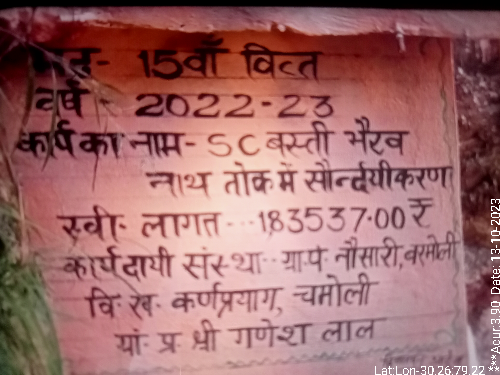 मद- 15वाँ वित्त
वर्ष - 2022-23
कार्य का नाम- SC बस्ती भैरव
नाथ तोक में सौर्न्दयीकरण
स्वी. लागत...183537.00 ₹
कार्यदायी संस्था.. ग्रा.पं. नौसारी,
वि. ख. कर्णप्रयाग, चमोली
ग्रां. प्र. श्री गणेश लाल
Lat Lon-30.26:79.22
***Acur:3.90, Date: 13-10-2023